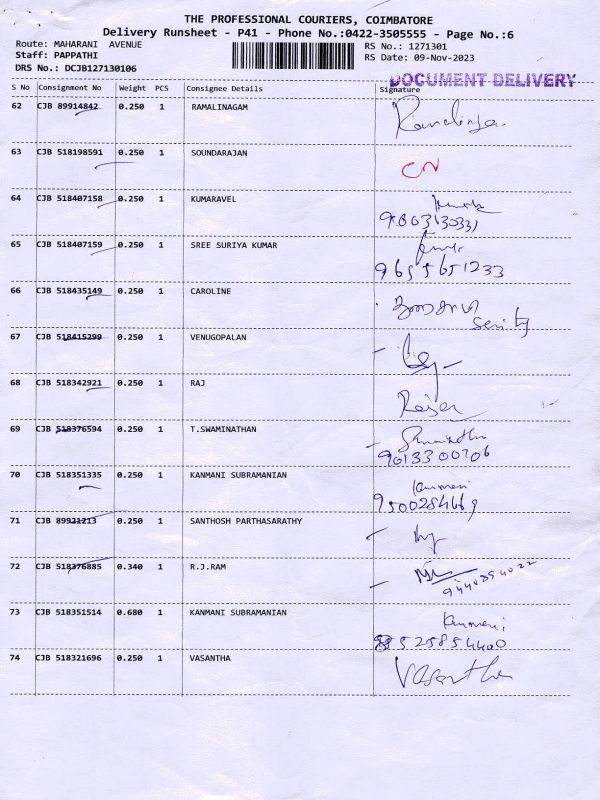 THE PROFESSIONAL COURIERS, COIMBATORE
Delivery Runsheet - P41 - Phone No.:0422-3505555 - Page No.:6
Route: MAHARANI AVENUE
Staff: PAPPATHI
DRS No.: DCJB127130106
RS No.: 1271301
RS Date: 09-Nov-2023
DOCUMENT DELIVERY
S No Consignment No Weight PCS Consignee Details Signature
62 CJB 89914842 0.250 1 RAMALINAGAM
63 CJB 518198591 0.250 1 SOUNDARAJAN CN
64 CJB 518407158 0.250 1 KUMARAVEL
65 CJB 518407159 0.250 1 SREE SURIYA KUMAR
9655651233
66 CJB 518435149 0.250 1 CAROLINE
67 CJB 518415299 0.250 1 VENUGOPALAN
68 CJB 518342921 0.250 1 RAJ
69 CJB 518376594 0.250 1 T.SWAMINATHAN
9013300206
70 CJB 518351335 0.250 1 KANMANI SUBRAMANIAN
9500284669
71 CJB 89921213 0.250 1 SANTHOSH PARTHASARATHY
72 CJB 518376885 0.340 1 R.J.RAM
73 CJB 518351514 0.680 1 KANMANI SUBRAMANIAN
74 CJB 518321696 0.250 1 VASANTHA Vasantha